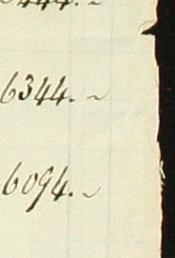 6344. ~
6094. ~